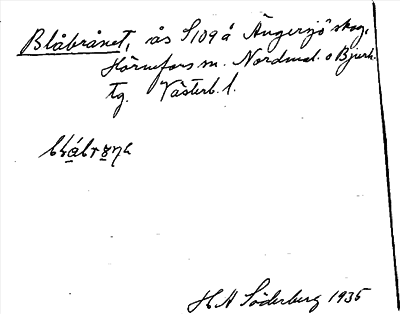 Blåbrånet, ås S109å Ängersjö skog,
Hörnefors m. Nordmal. o Bjurh.
tg. Västerb. l.
H A Söderberg 1935